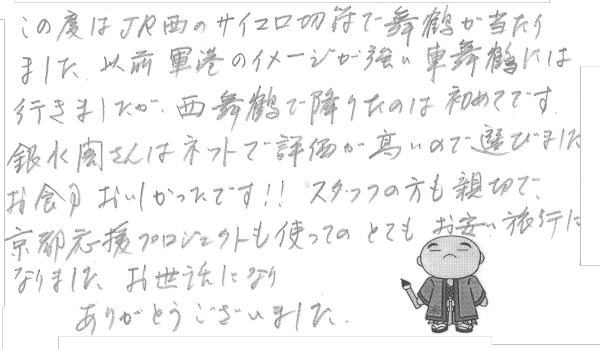 この度はJR西のサイコロ切符で舞鶴が当たり
ました。以前軍港のイメージが強い東舞鶴には
行きましたが、西舞鶴で降りたのは初めてです。
銀水閣さんはネットで評価が高いので選びました
お食事おいしかったです!! スタッフの方も親切で、
京都応援プロジェクトも使ってのとてもお安い旅行に
なりました。お世話になり
ありがとうございました。